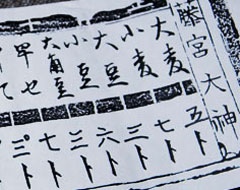 藤宮大神
大麦 五ト
小麦 七ト
大豆 三ト
小豆 六ト
大角豆 三ト
七ト
三ト